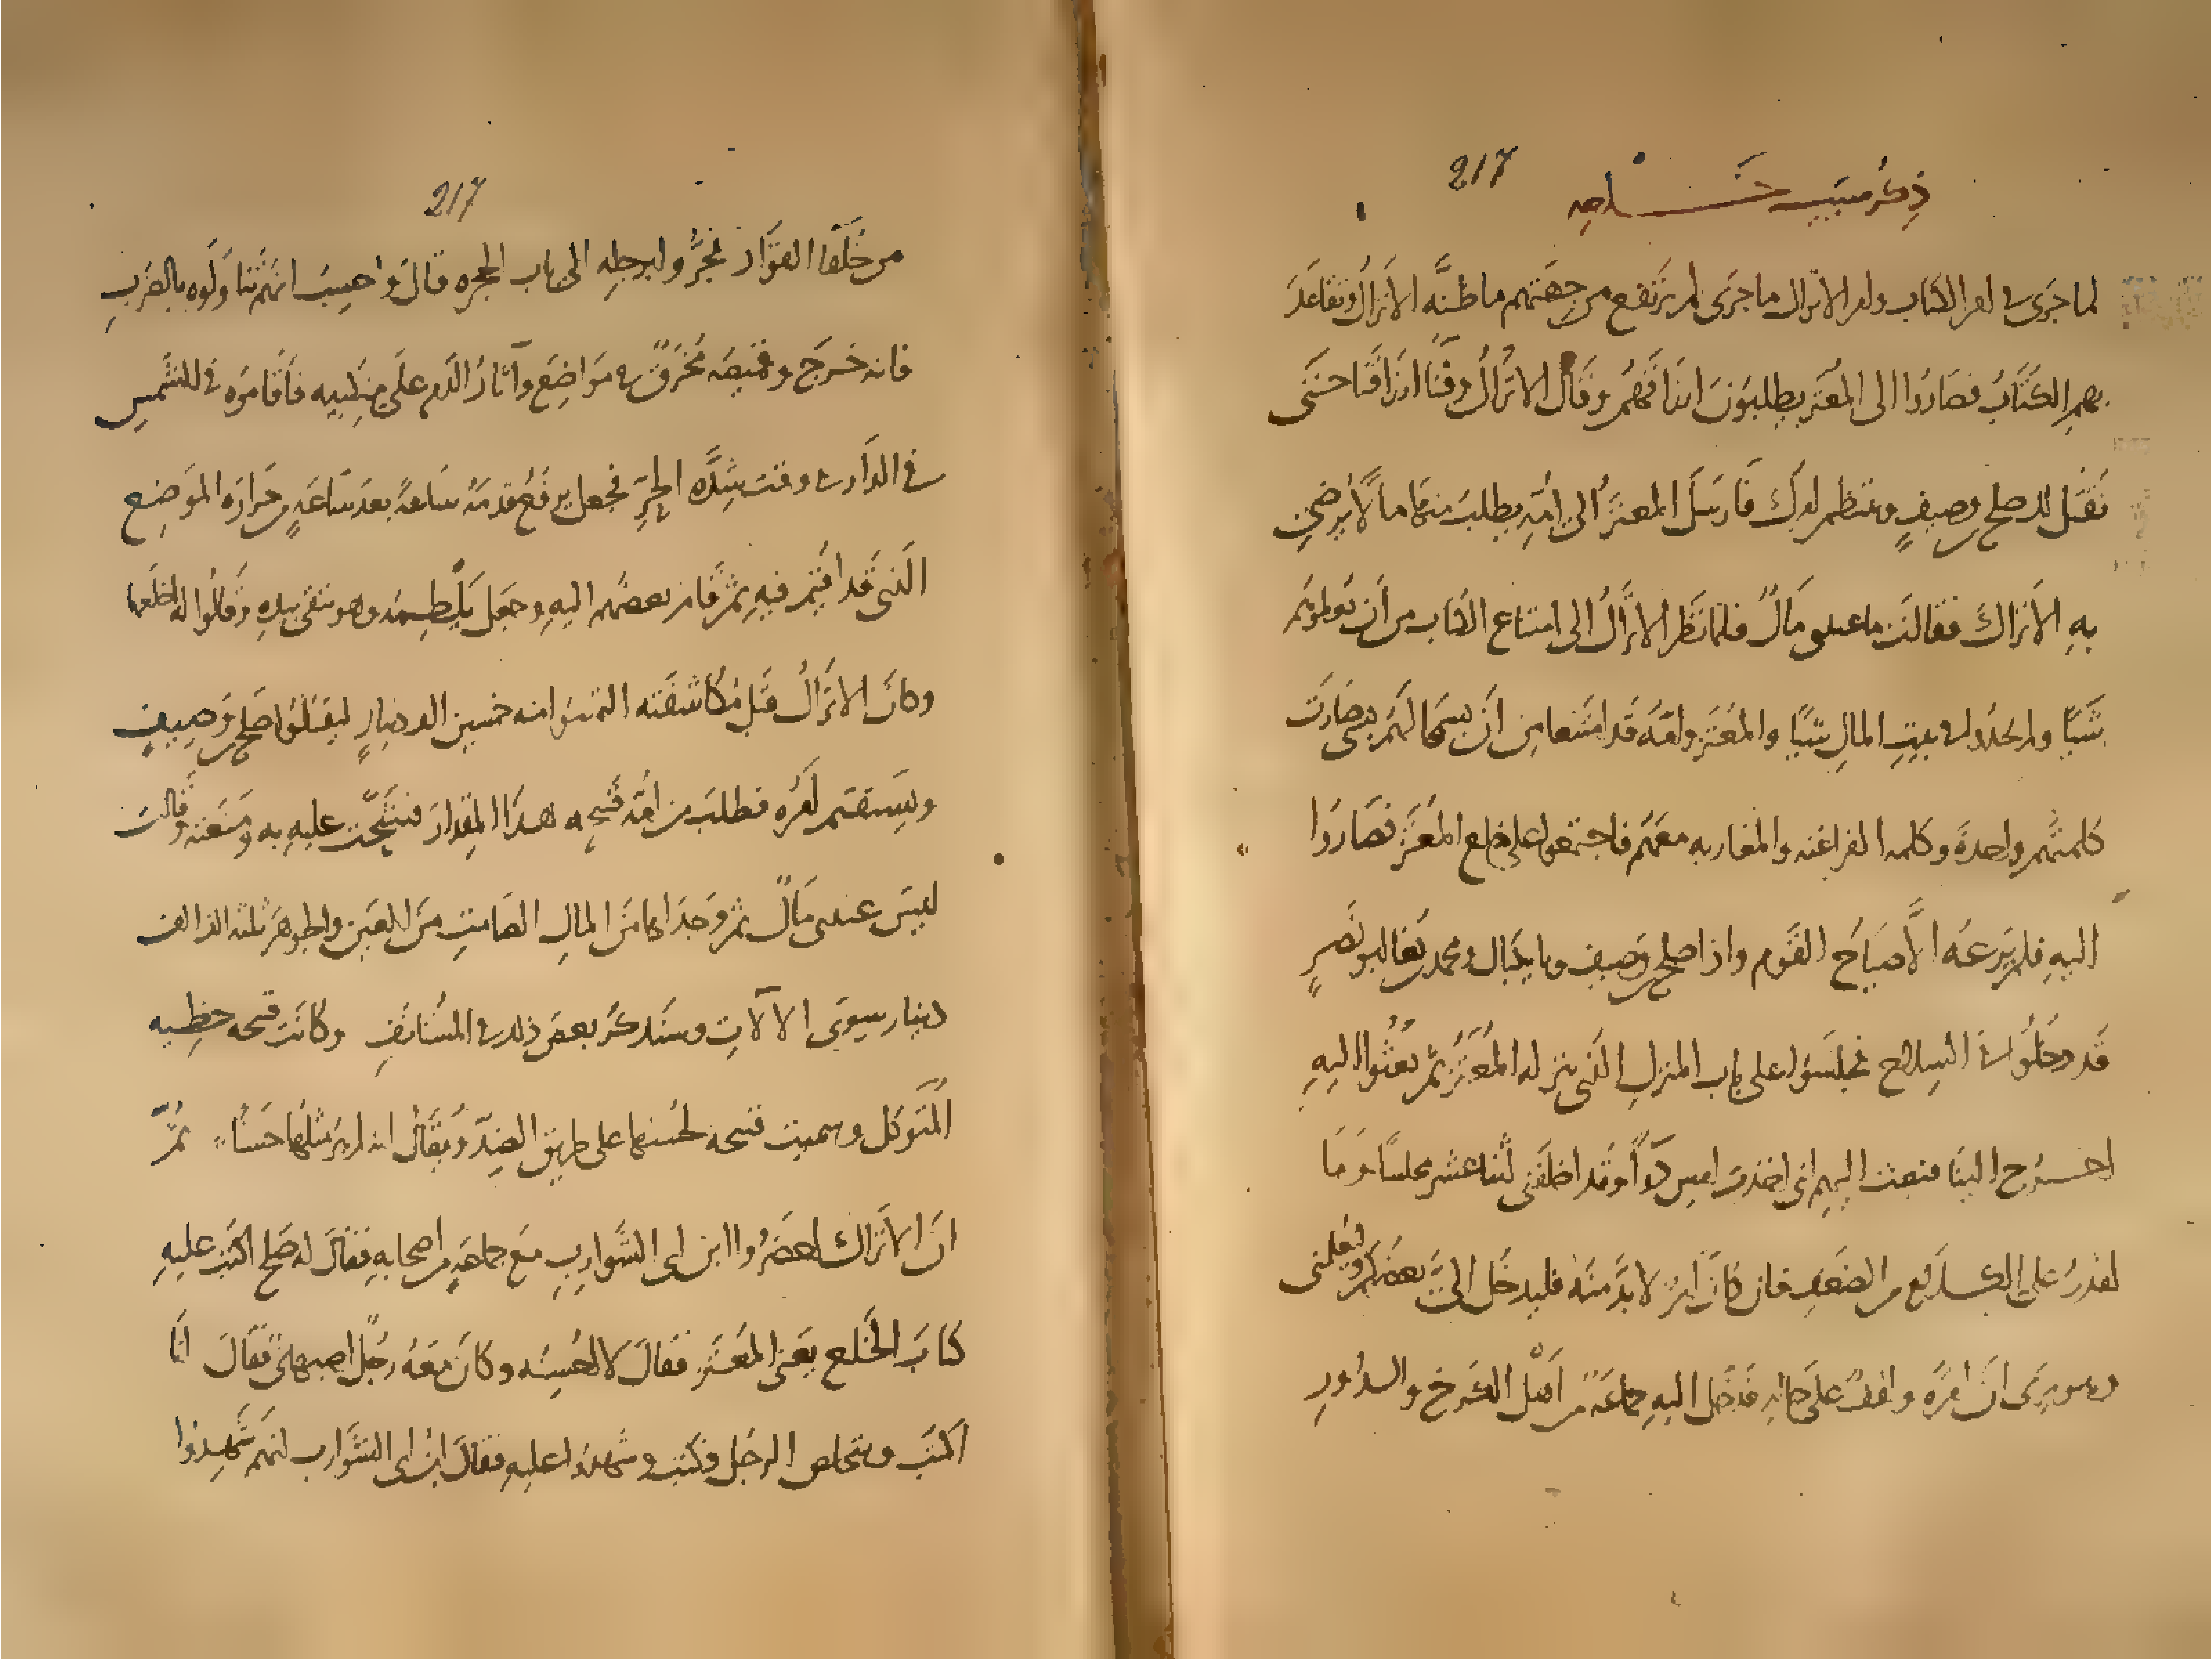 217
ذِكرُ سَبَبِ خَـــلعِهِ
لما جرى في امر الكتاب وامر الاتراك ما جَرَى لم يَرتَفع من جِهَتهم ما ظنَّه الأتراكُ وتقاعَدَ
بهمِ الكُتّابُ فصَاروُا الى المُعتَز يطلبوُنَ ارزاقهُم وقالَ الاتراكُ وفنا ارزاقنا حَتى
نَقتُل لك صلح وصِيفٍ وينتظم امرك فَارسَلَ المعتزُ الى أمِّهِ يطلبُ منها مالاً يُرضي
بهِ الأتراكَ فقالَت ما عندي مَالٌ فلما نَظَر الاتراكُ الى امتناع الكتاب من أن يُعطوهم
شَيًا ولم يجدوا في بيتِ المالِ شيًا والمُعتز وامّه قَد امتَنعا مِن انْ يسمحا لهَم بشي صَارَت
كلمتُهم واحدةً وكلمه الفراغنه والمغاربه معهَم فاجتمعوا على خلع المعتَز فصَاروُا
اليهِ فلم يَرعَه الّا صيَاحُ القَوم واذا صلح بن وَصِيف وبايكباك ومحمد بن بُغا ابو نَصرٍ
قَد دخلُوا في السلاح فجلسَوا على باب المنزلِ الذي ينزله المُعتَزُ ثم بعثُوا اليهِ
اخـرُج الينَا فبعث اليهم اني اخذتُ امسِ دَوآً وقد اخلفَني اثنا عشر مجلسًا وَمَا
اقدرُ على الكـلام من الضَعفِ فان كانَ امرٌ لا بدَّ منهُ فليدخُل اليَّ بعضكم وليعلمني
وهو يرَى انّ امرَه واقفٌ على حَالهِ فدَخَل اليهِ جماعَةٌ من اَهْل الكَرخ والدوُرِ
217
من خلفا القوّاد فجَرُّوا برجلهِ الى باب الحجره قالَ واحسِبُ انهَم تَناوَلوُه بالضربِ
فانه خَرجَ وقميصُه مُخرَقٌ في مَوَاضِعَ وآثارُ الدَم علَى منكبيه فأقاموُه في الشَمسِ
في الدارِ في وقت شِدَّه الحرِّ فجعل يرفَعُ قدمَهُ سَاعةً بعدَ سَاعَةٍ من حَرارَه الموَضِع
الّذي قَد اُقيمَ فيهِ ثم قامَ بعضُهم اليهِ وجَعل يَلْطِمه وهو يتقي بيدِهِ وَقالُوا له اخلَعها
وكانَ الاتراكُ قبلَ مُكاشَفَته التمسَوا منه خمسين الف دينارٍ ليقتلوا صلح بن وَصِيفٍ
ويسَتقيم امرُه فطلبَ من امّه قَبيحه هذا المِقدارَ فشَحّت عليهِ به ومَنعَته وقالت
ليسَ عندي مَالٌ ثم وُجدَ لها مَن المالِ الصَامتِ مَن العَين والجوهَر ثلثه الف الف
دينار سِوى الآلآتِ وسنَذكرُ بعضَ ذلك في المستَانَفِ وكانَت قبيحه حظيه
المُتَوكل وسميت قبيحه لحُسنها على طريق الضِدّ ويُقالُ انه لم يُرَ مثلهُا حُسناً ثم
انَ الأتراك احضَرُوا ابن ابى الشَوارِبِ مَع جماعهٍ من اصحابهِ فقالَ له صَلح اكتبُ عليهِ
كتابَ الخَلع يعَني المُعتَز فقالَ لا اُحسِنُه وكانَ مَعَهُ رَجُلٌ اصبهانى فقالَ انَا
اكتبُ ويتخلص الرجُل فكتبَ وشَهدَوا عليهِ فقالَ ابنُ ابى الشوارب انهَم شَهِدوُا